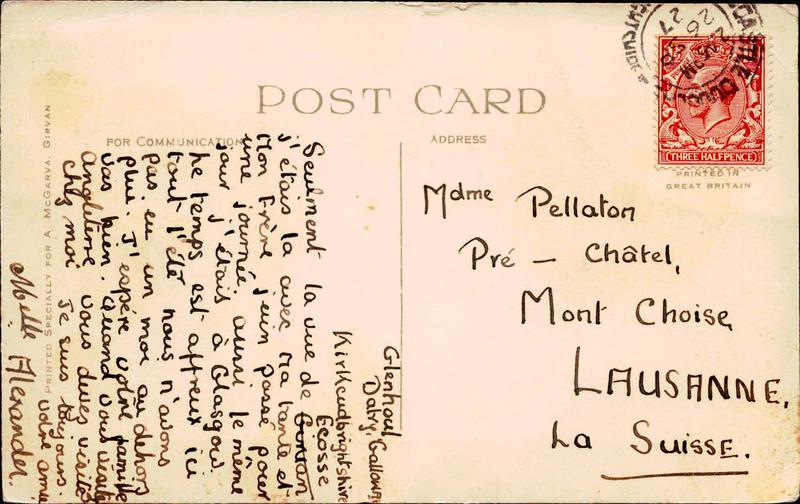 POST CARD
FOR COMMUNICATION
ADDRESS
PRINTED SPECIALLY FOR A. McGARVA, GIRVAN
THREE HALFPENCE
PRINTED IN
GREAT BRITAIN
Mdme Pellaton
Pré - Châtel,
Mont Choise
LAUSANNE.
La Suisse.
Glenhoul
Dalry, Galloway
Kirkcudbrightshire
Ecosse
Seulment la vue de Girvan
j'étais la avec ma tante et
Mon frère j'en passé pour
une journée, aussi le même
jour j'étais à Glasgow
Le temps est affreux ici
tout l'été nous n'avons
pas eu un moi au dehors
pluie. J'espère votre famille
vas bien. Quand vous visite
Angleterre vous devez visité
chez moi Je suis toujours
votre amie
Mdlle Alexander.